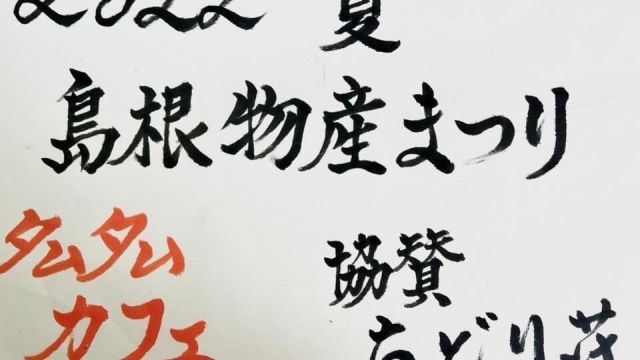 2022 夏
島根物産まつり
タムタム
カフェ
協賛
ちどり茂